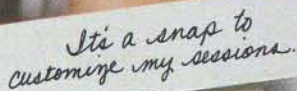 It's a snap to
customize my sessions.